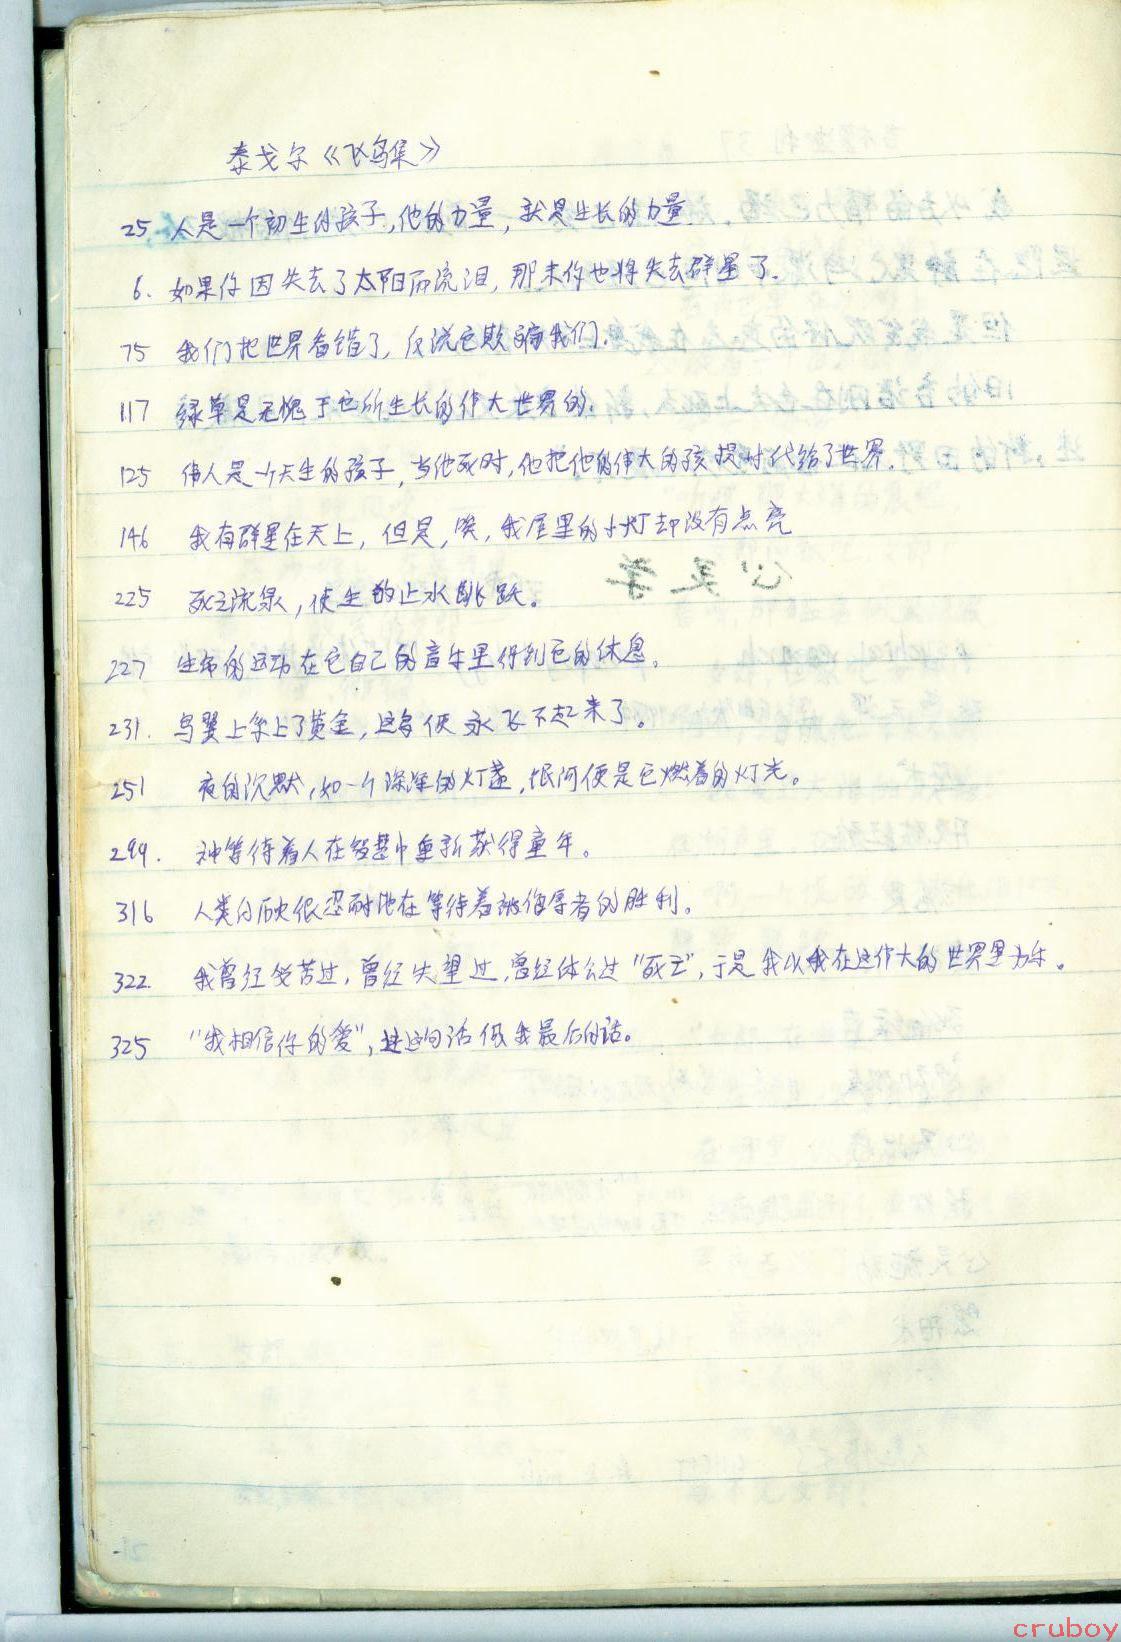 泰戈尔《飞鸟集》
25 人是一个初生的孩子,他的力量,就是生长的力量.
6. 如果你因失去了太阳而流泪,那末你也将失去群星了.
75 我们把世界看错了,反说它欺骗我们.
117 绿草是无愧于它所生长的伟大世界的.
125 伟人是一个天生的孩子,当他死时,他把他的伟大的孩提时代给了世界.
146 我有群星在天上,但是,唉,我屋里的小灯却没有点亮
225 死之流泉,使生的止水跳跃。
227 生命的运动在它自己的音乐里得到它的休息。
231. 鸟翼上系上了黄金,这鸟便永飞不起来了。
251 夜的沉默,如一个深深的灯盏,银河便是它燃着的灯光。
299. 神等待着人在智慧中重新获得童年。
316 人类的历史很忍耐地在等待着被侮辱者的胜利。
322. 我曾经受苦过,曾经失望过,曾经体会过"死亡",于是我以我在这伟大的世界里为乐。
325 "我相信你的爱",让这句话做我最后的话。
cruboy